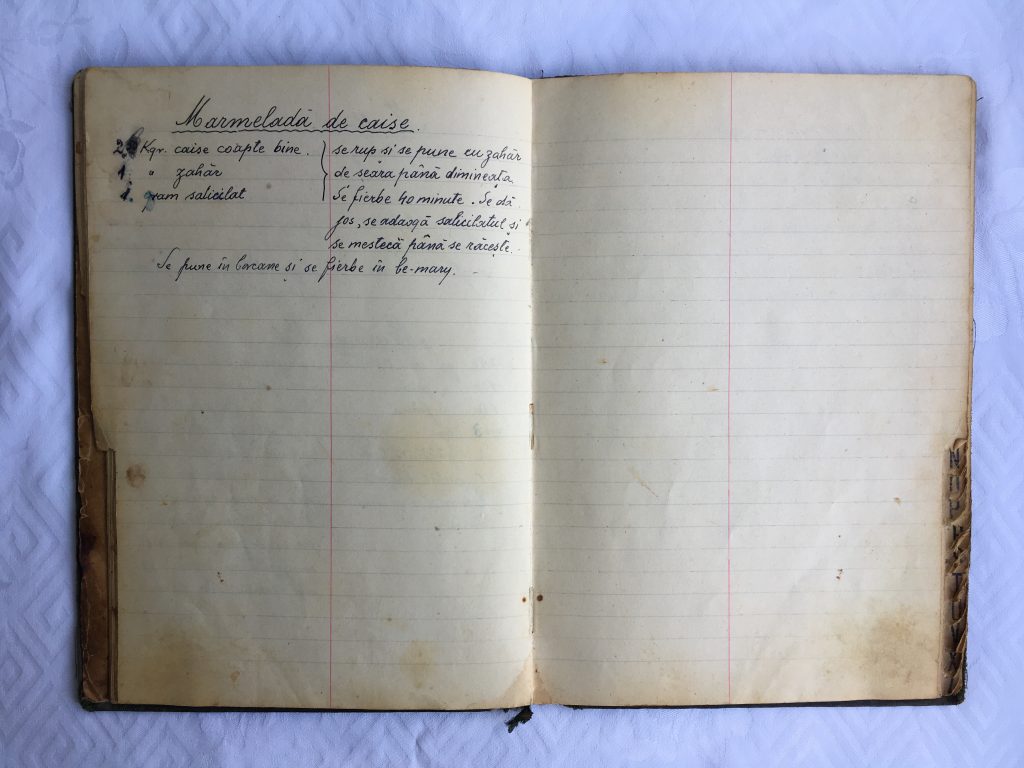 Marmeladă de caise.
2 Kgr. caise coapte bine. se rup si se pune cu zahăr
1 " zahăr de seara până dimineața.
1. gram salicilat Se fierbe 40 minute. Se dă
jos, se adaogă salicilatul și
se mestecă până se răcește.
Se pune în borcane și se fierbe în be-mary.